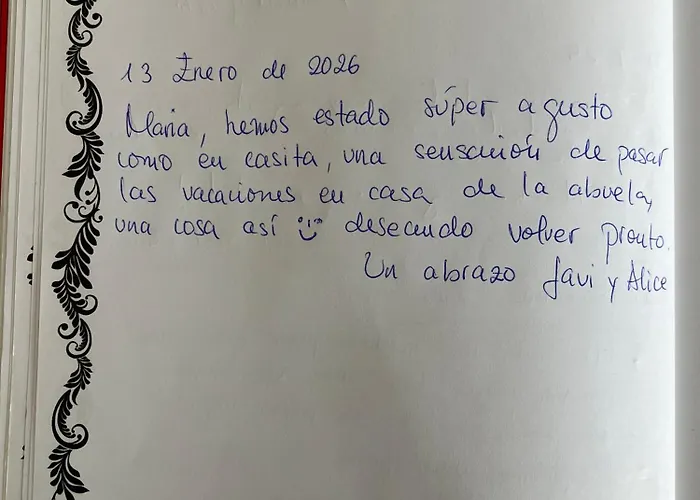 13 Enero de 2026
Maria, hemos estado súper a gusto
como en casita, una sensación de pasar
las vacaciones en casa de la abuela,
una cosa así :) deseando volver pronto.
Un abrazo Javi y Alice